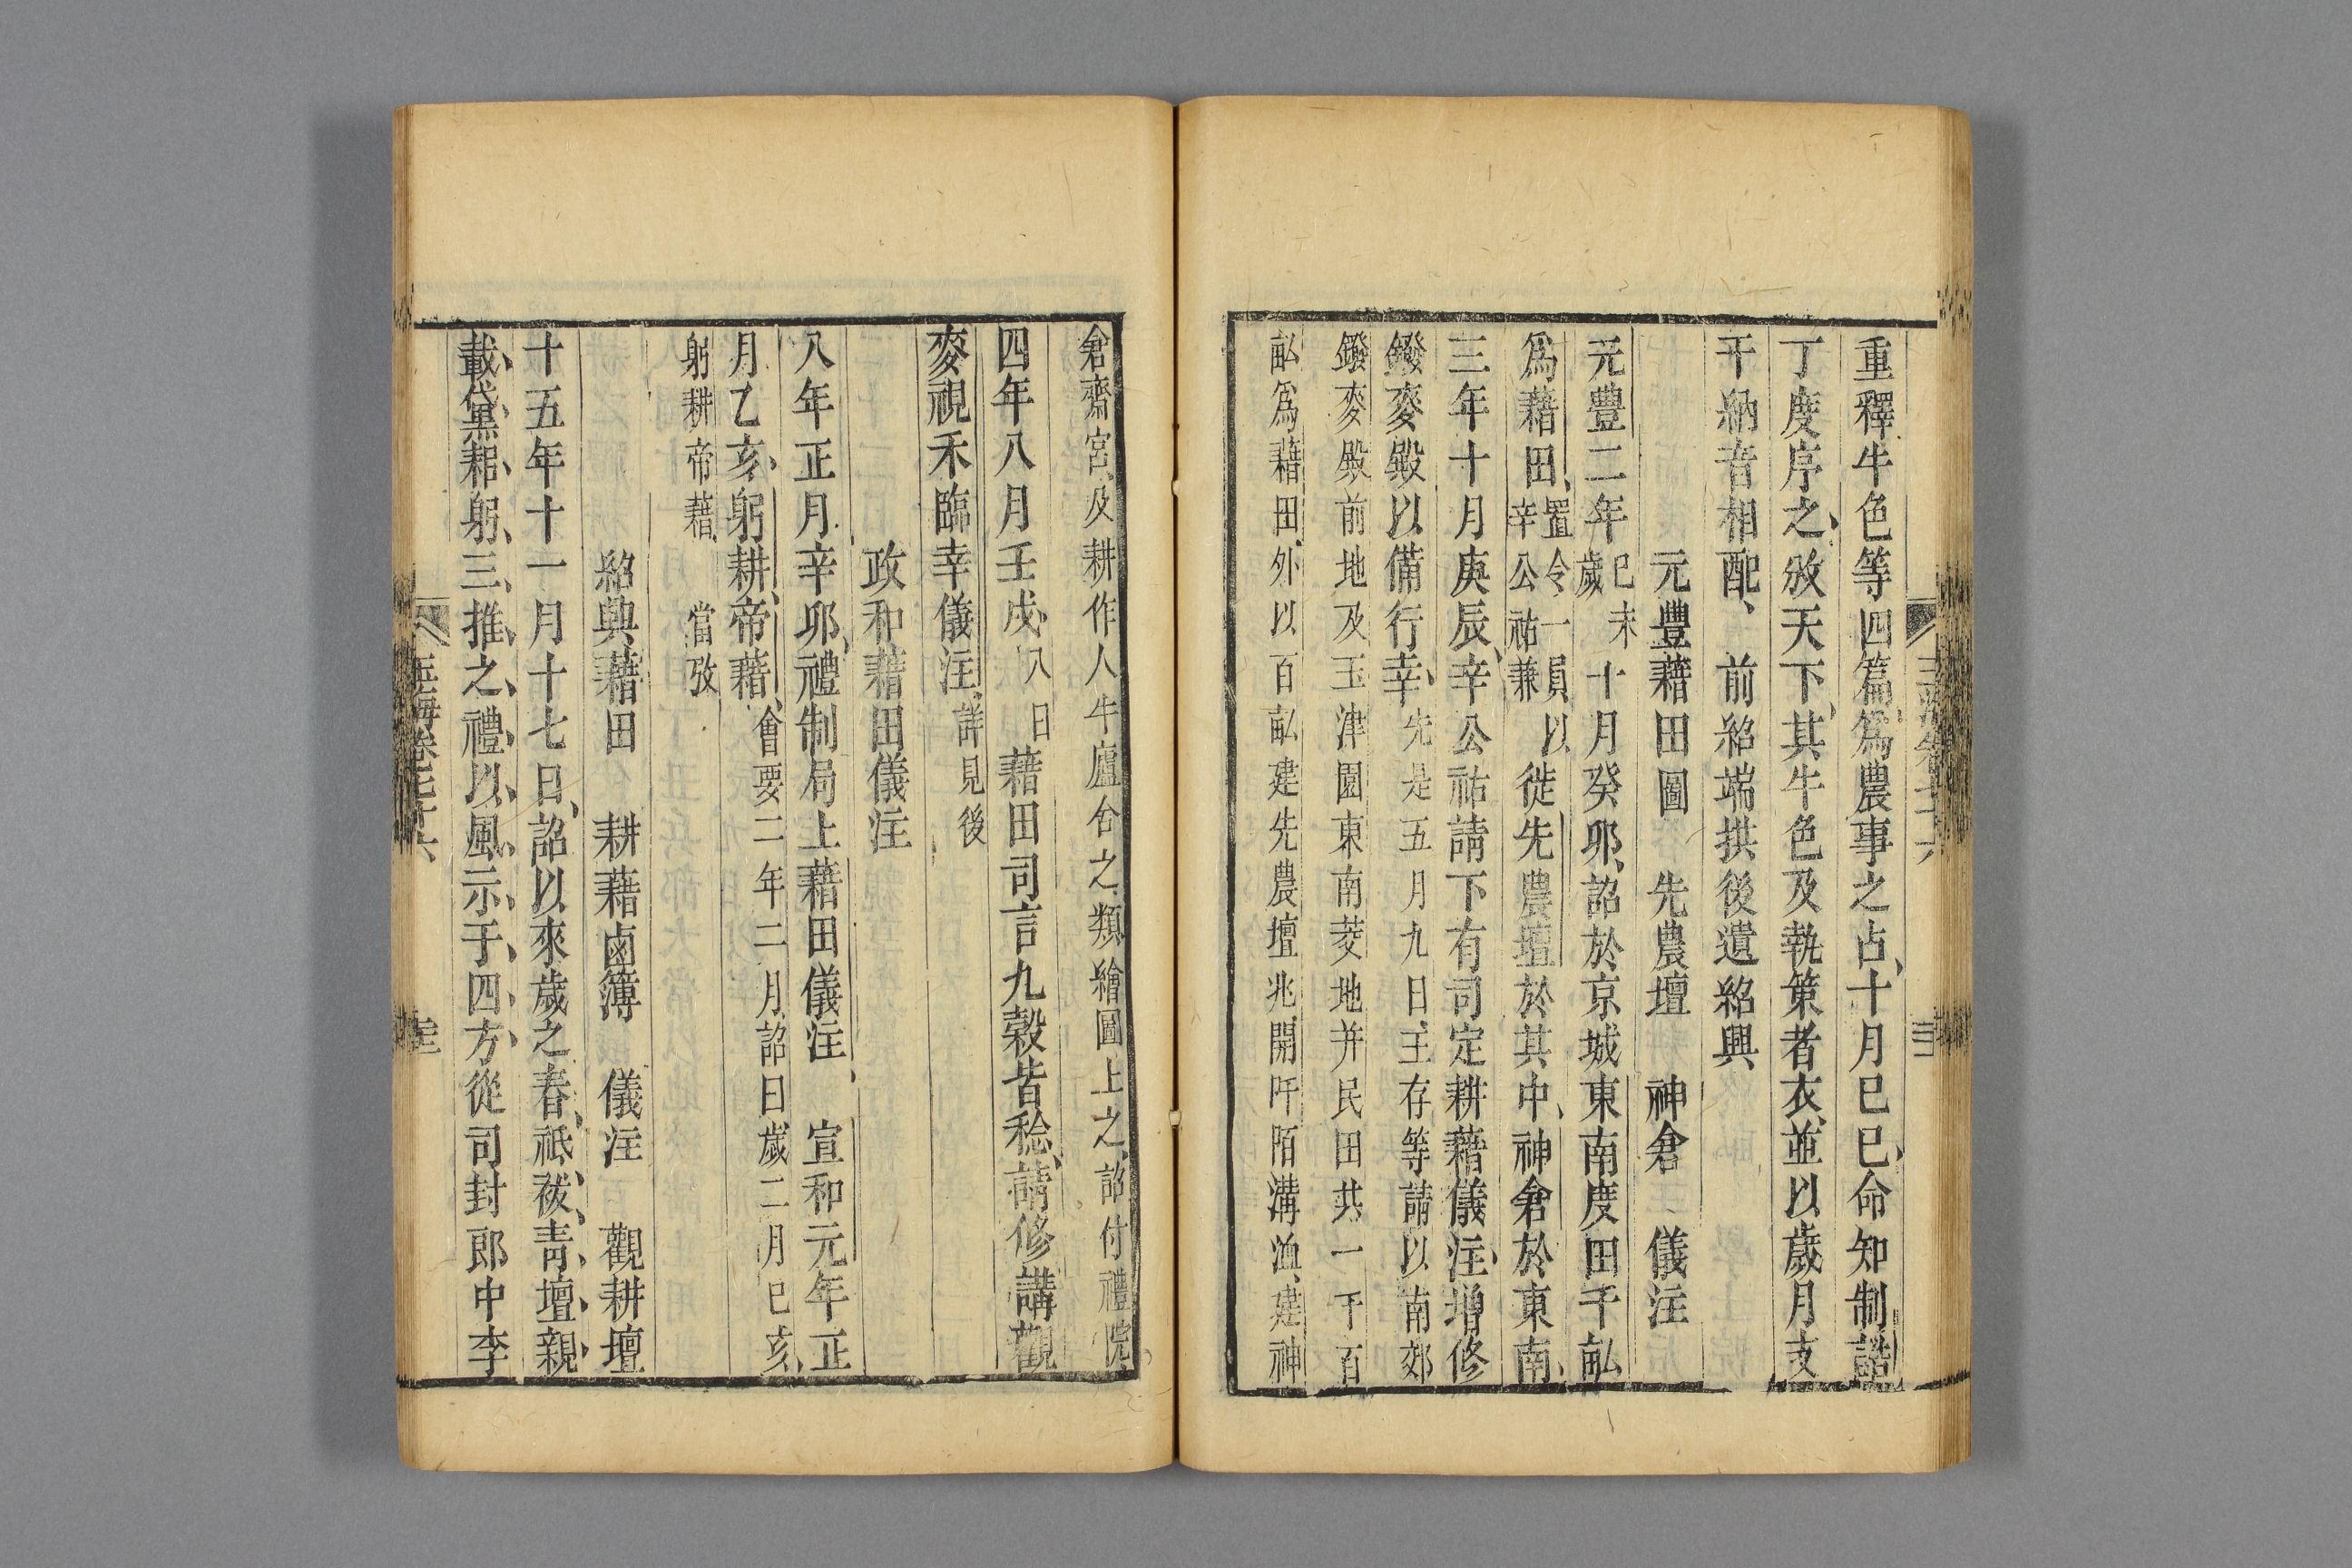 重釋牛色等四篇爲農事之占十月已巳命知制誥
丁度序之攽天下其牛色及執策者衣並以歲月支
干納音相配前紹端拱後遺紹興
元豐藉田圖 先農壇 神倉 儀注
元豐二年己未歲十月癸卯詔於京城東南度田千畝
爲藉田置令一員以辛公祐兼徙先農壇於其中神倉於東南
三年十月庚辰辛公祐請下有司定耕藉儀注增修
鏺麥殿以備行幸先是五月九日王存等請以南郊
鏺麥殿前地及玉津園東南菱地并民田共一千百
畝爲藉田外以百畝建先農壇兆開阡陌溝洫建神
倉齋宮及耕作人牛廬舍之類繪圖上之詔付禮院
四年八月壬戌八日藉田司言九穀皆稔請修講觀
麥視禾臨幸儀注詳見後
政和藉田儀注
八年正月辛卯禮制局上藉田儀注 宣和元年正
月乙亥躬耕帝藉會要二年二月詔曰歲二月已亥
躬耕帝藉 當攷
紹興藉田 耕藉鹵簿 儀注 觀耕壇
十五年十一月十七日詔以來歲之春祗祓青壇親
載黛耜躬三推之禮以風示于四方從司封郎中李
玉海卷七十六